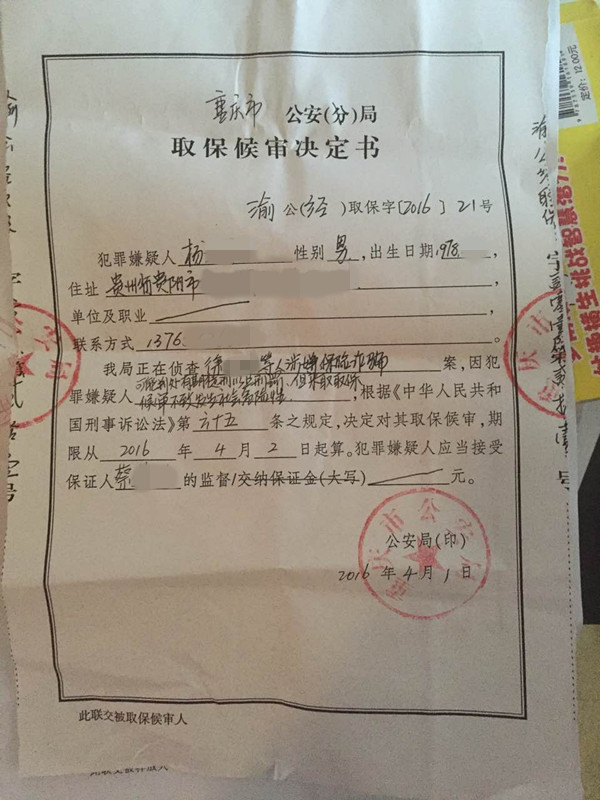 重庆市 公安(分)局
取保候审决定书
渝公(经)取保字[2016]21号
犯罪嫌疑人 杨 性别 男 ,出生日期 1978 ,
住址 贵州省贵阳市 。
单位及职业 。
联系方式 1376 。
我局正在侦查 徐 等人涉嫌保险诈骗 案,因犯
罪嫌疑人 可能判处有期徒刑以上刑罚、但采取取保
候审不致发生社会危险性 ,根据《中华人民共和
国刑事诉讼法》第 六十五 条之规定,决定对其取保候审,期
限从 2016 年 4 月 2 日起算。犯罪嫌疑人应当接受
保证人 蔡 的监督/交纳保证金(大写) 元。
公安局(印)
2016 年 4 月 1 日
此联交被取保候审人
定价:12.00元